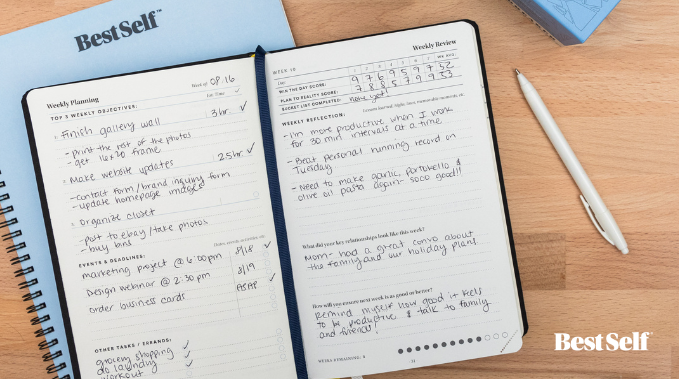 BestSelf™
Weekly Planning
Week of: 08.16
TOP 3 WEEKLY OBJECTIVES:
Est. Time
1. Finish gallery wall 3hr. ✓
- print the rest of the photos
- get 16x20 frame
2. Make website updates 2.5hr ✓
- contact form/brand inquiry form
- update homepage images
3. Organize closet
- post to ebay/take photos
- buy bins
EVENTS & DEADLINES:
marketing project @ 6:00pm 8/18 ✓
Design webinar @ 2:30pm 8/19
order business cards ASAP ✓
OTHER TASKS / ERRANDS:
grocery shopping ✓
do laundry ✓
workout ✓
WEEK
Weekly Review
Day 1 2 3 4 5 6 7 WK AVG:
WIN THE DAY SCORE: 9 7 6 9 5 9 7 52
PLAN TO REALITY SCORE: 7 8 8 5 7 9 9 53
BUCKET LIST COMPLETED: None yet!
WEEKLY REFLECTION:
- I'm more productive when I work
for 30 min intervals at a time
- Beat personal running record on
Tuesday
- Need to make garlic, portobello &
olive oil pasta again - soco good!!
What did your key relationships look like this week?
Mom - had a great convo about
the family and our holiday plans
How will you ensure next week is as good or better?
Remind myself how good it feels
to be productive & talk to family
and friends!
WEEKS REMAINING:
BestSelf™